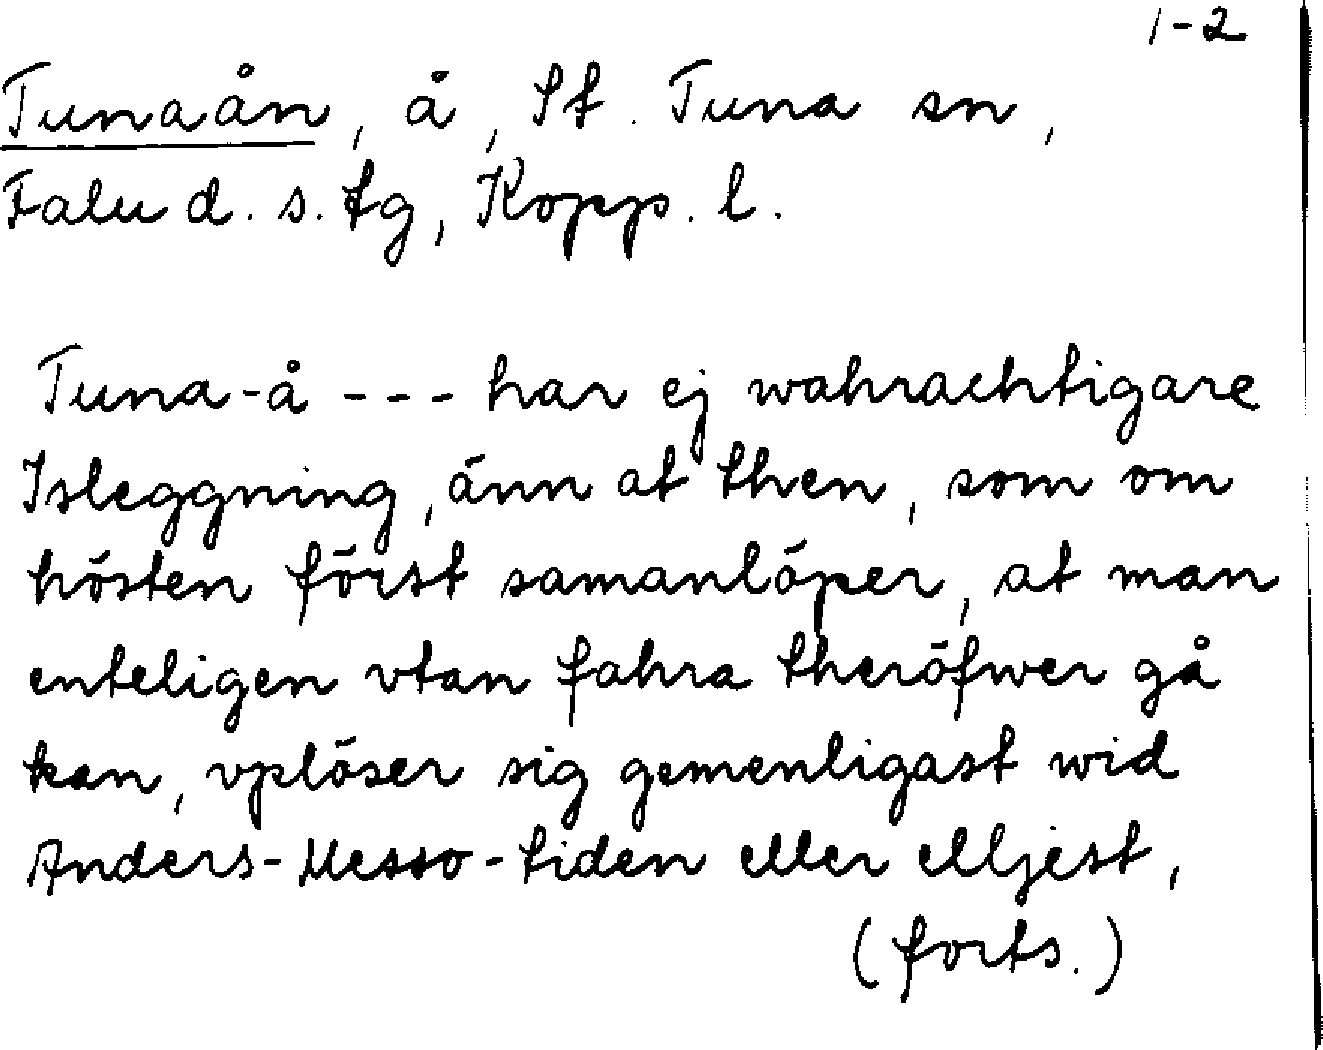 1-2
Tunaån, å, St. Tuna sn,
Falu d. s. tg, Kopp. l.
Tuna-å --- har ej wahrachtigare
Isleggning, änn at then, som om
hösten först samanlöper, at man
enteligen vtan fahra theröfwer gå
kan, vplöser sig gemenligast wid
Anders-Messo-tiden eller elljest,
(forts.)